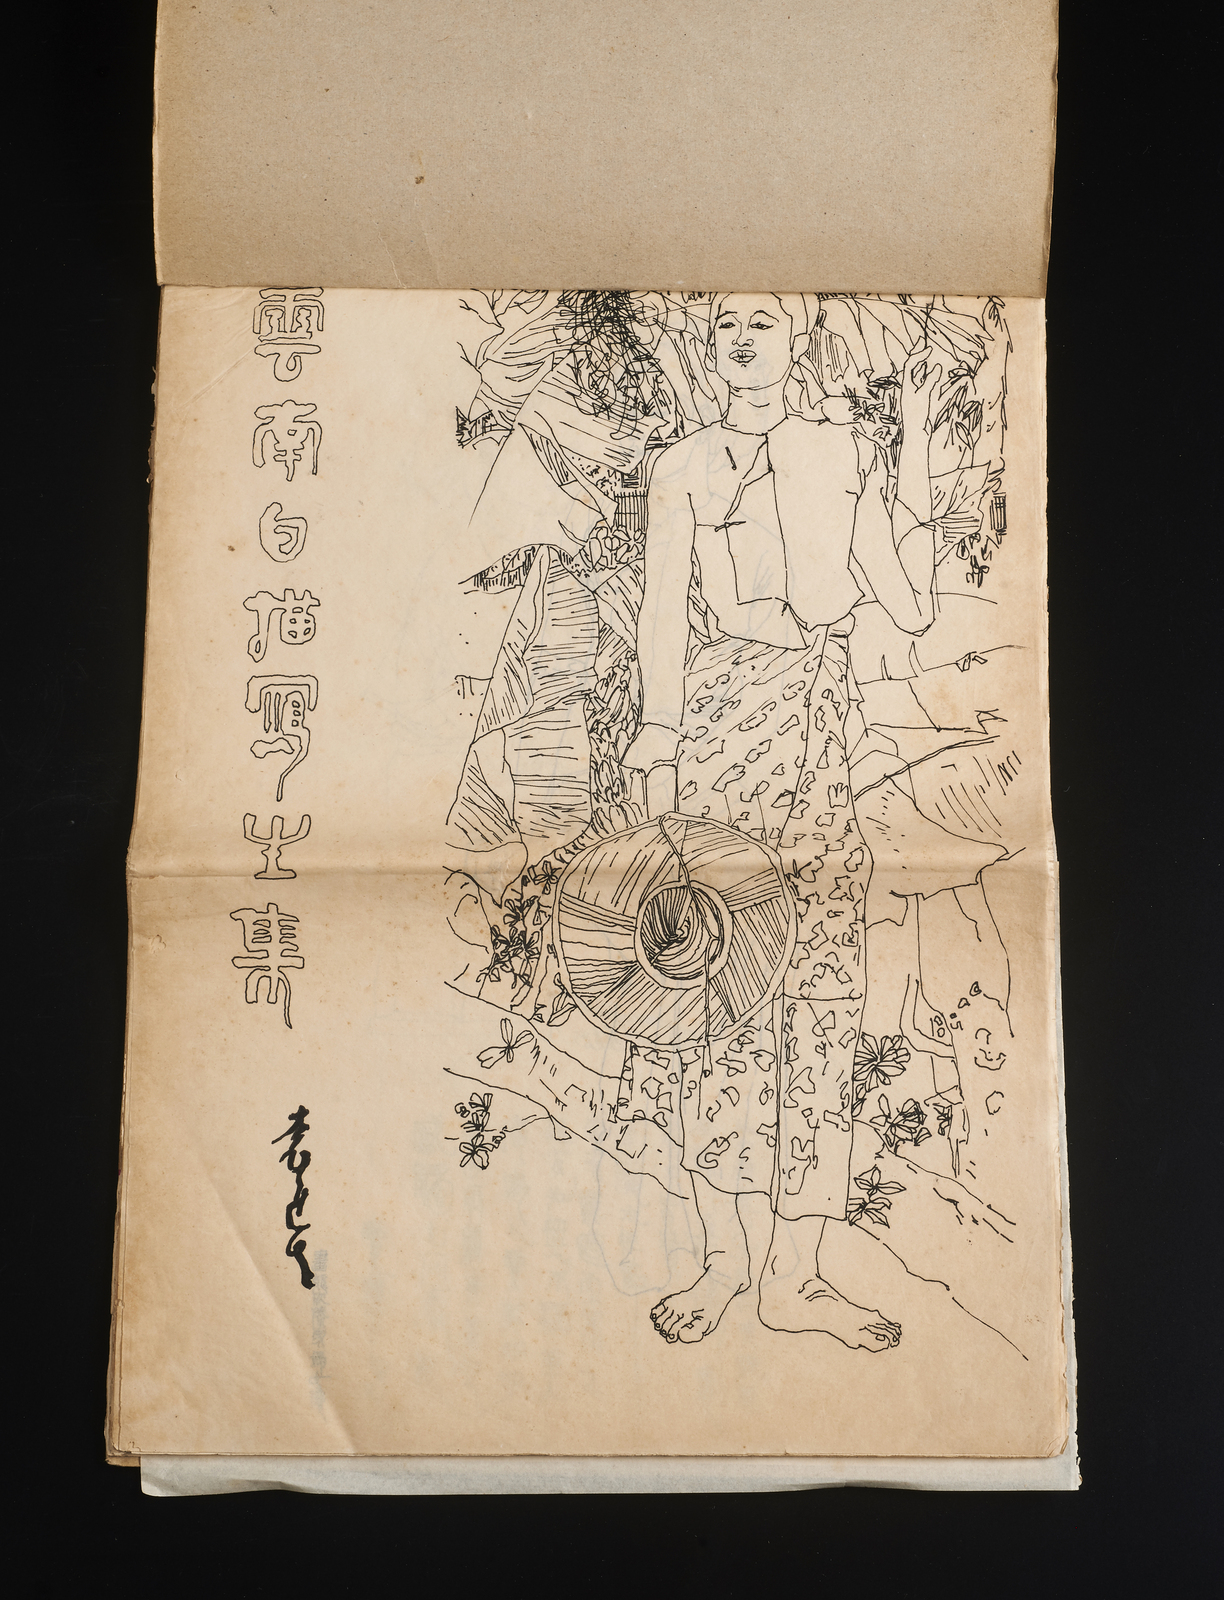 雲南白描寫生集
袁运生